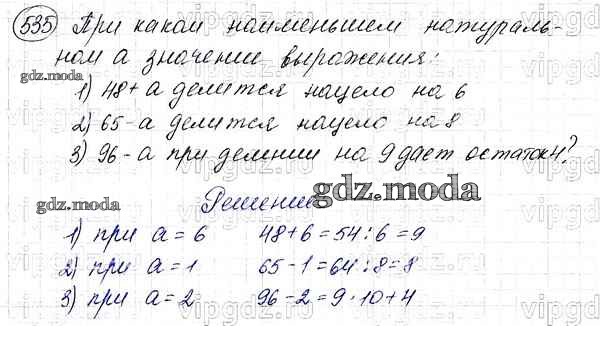 535 При каком наименьшем натураль-
ном а значении выражения:
gdz.moda
1) 48+а делится нацело на 6
2) 65-а делится нацело на 8
3) 96-а при делении на 9 дает остаток 4?
gdz.moda
Решение
gdz.moda
1) при а = 6 48+6=54:6=9
2) при а = 1 65-1=64:8=8
3) при а = 2 96-2=9·10+4